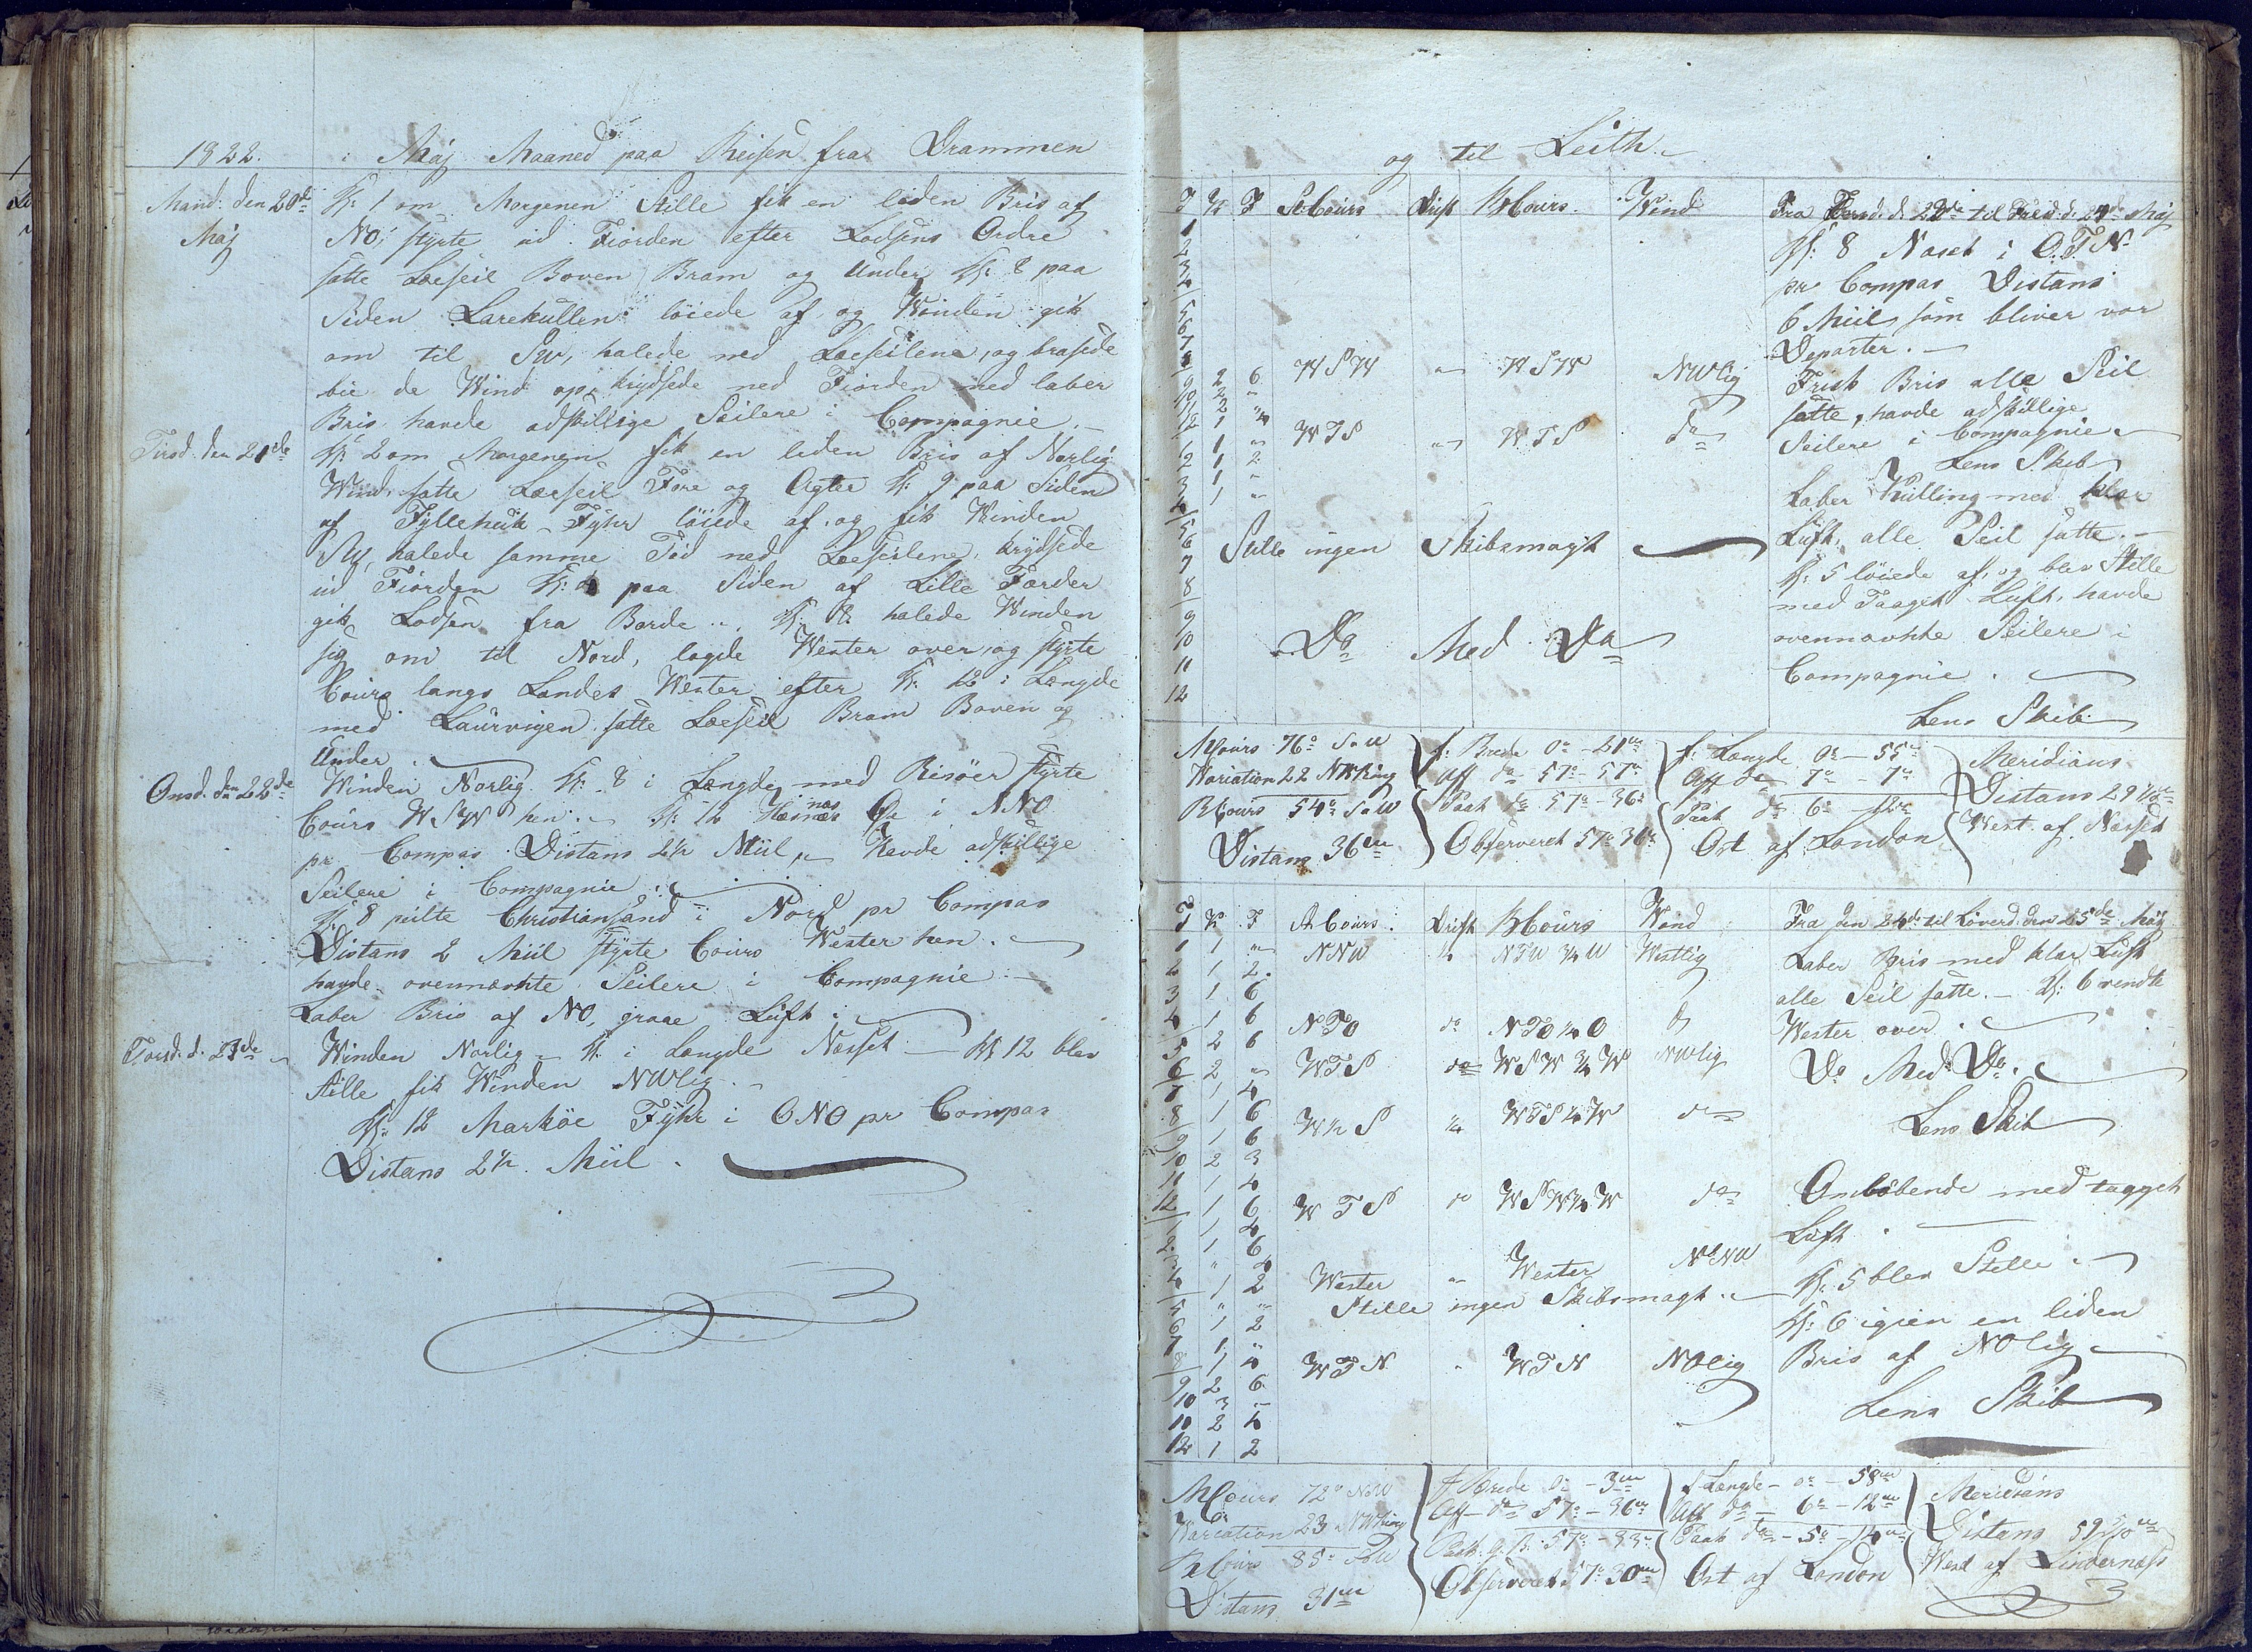 1822. i Maj Maaned paa Reisen fra Drammen
Mand: den 20de Kl: 1 om Morgenen Stille fik en liden Bris af
Maj NO, styrte ud Fiorden efter Lodsens Ordre
satte Læseil Boven Bram og Under Kl: 8 paa
Siden Larekullen løiede af og Winden gik
om til SW, halede ned Læseilene, og brasede
bie de Wind op, krydsede ned Fiorden med laber
Bris havde adskillige Seilere i Compagnie.
Tirsd. den 21de Kl: 2 om Morgenen fik en liden Bris af Norlig
Wind satte Læeseil Fore og Agter Kl: 9 paa Siden
af Fyllehuk Fyhr løiede af og fik Winden
SW, halede samme Tid ned Læeseilene, krydsede
ud Fiorden Kl: 4 paa Siden af Lille Færder
gik Lodsen fra Borde. Kl: 8 halede Winden
sig om til Nord, lagde Wester over, og styrte
Cours langs Landet Wester efter Kl: 12 i Længde
med Laurvigen satte Læeseil Bram Boven og
Under.
Onsd. den 22de Winden Norlig Kl: 8 i Længde med Risöer styrte
Cours WSW hen. Kl: 12 Øe i NNO
pr Compas Distans 2 1/2 Miil, Havde adskillige
Seilere i Compagnie.
Kl: 8 peilte Christiansand i Nord pr Compas
Distans 2 Miil styrte Cours Wester hen.
havde ovennævnte Seilere i Compagnie.
Laber Bris af NO, graae Luft.
Torsd. d. 23de Winden Norlig Kl: i Længde Næsset — Kl 12 blev
stille fik Winden NWlig.
Kl: 12 Markøe Fyhr i ONO pr Compas
Distans 2 1/2 Miil.
og til Leith
T K F StCours Drift BhCours. Wind Fra Torsd. d. 23de til Fred. d. 24de Maj
1
2 Kl: 8 Næset i O.T.N
3 pr Compas Distans
4 6 Miil som bliver vor
5 Departer.
6
7
8
9 2 6 WSW " WSW NWlig Frisk Bris alle Seil
10 2 " satte, havde adskillige
11 2 " Seilere i Compagnie
12 1 4 WTS " WTS do Lens Skib
1 1 "
2 1 2 Laber Kulling med klar
3 1 " Luft, alle Seil satte.
4 1 " Kl: 5 løiede af, og blev Stille
5
6 Stille ingen Skibsmagt med Taaget Luft, havde
7
8
9 ovennævnte Seilere i
10 Do Med Do Compagnie.
11
12 Lens Skib
MCours 76° SoW f: Brede 0° - 21m f: Længde 0° - 55m Meridians
Variation 22 NWRing Aff do 57° - 57m Aff do 7° - 7m Distans 29
BCours 54° SoW Paak do 57° - 36m Paak do 6° - 12m West af Næsset
Distans 36m Observeret 57° 36m Ost af London
T K F StCours Drift BhCours Wind Fra den 24de til Løverd. den 25de Maj
1 1 " NNW 1/4 NTW 3/4 W Westlig Laber Bris med klar Luft
2 1 2 alle Seil satte. Kl: 6 vendte
3 1 6 Wester over.
4 1 6 NTO do NTO 1/4 O do
5 2 6
6 2 " WTS do WSW 3/4 W NWlig Do Med Do.
7 1 4
8 1 6 W 1/2 S 1/4 WTS 1/4 W do Lens Skib
9 1 6
10 2 3
11 1 4
12 1 6 WTS do WSW 3/4 W do Omløbende med tagget
1 1 4 Luft.
2 1 6
3 " 4
4 1 2 Wester " Wester NNW Kl: 5 blev Stille
5 " " Stille ingen Skibsmagt. Kl: 6 igien en liden
6 1 2
7 1 " Bris af NOlig
8 1 4 WTN " WTN NOlig
9 2 6
10 3 " Lens Skib
10 2 4
12 1 2
MCours 72° NoW f: Brede 0° - 3m f: Længde 0° - 58m Meridians
Variation 23 NWRing Aff do 57° - 36m Aff do 6° - 12m Distans 59
BCours 85° SoW Paak. g. B. 57° - 33m Paak do 5° - 14m West af Lindernæss
Distans 31m Observeret 57° 30m Ost af London